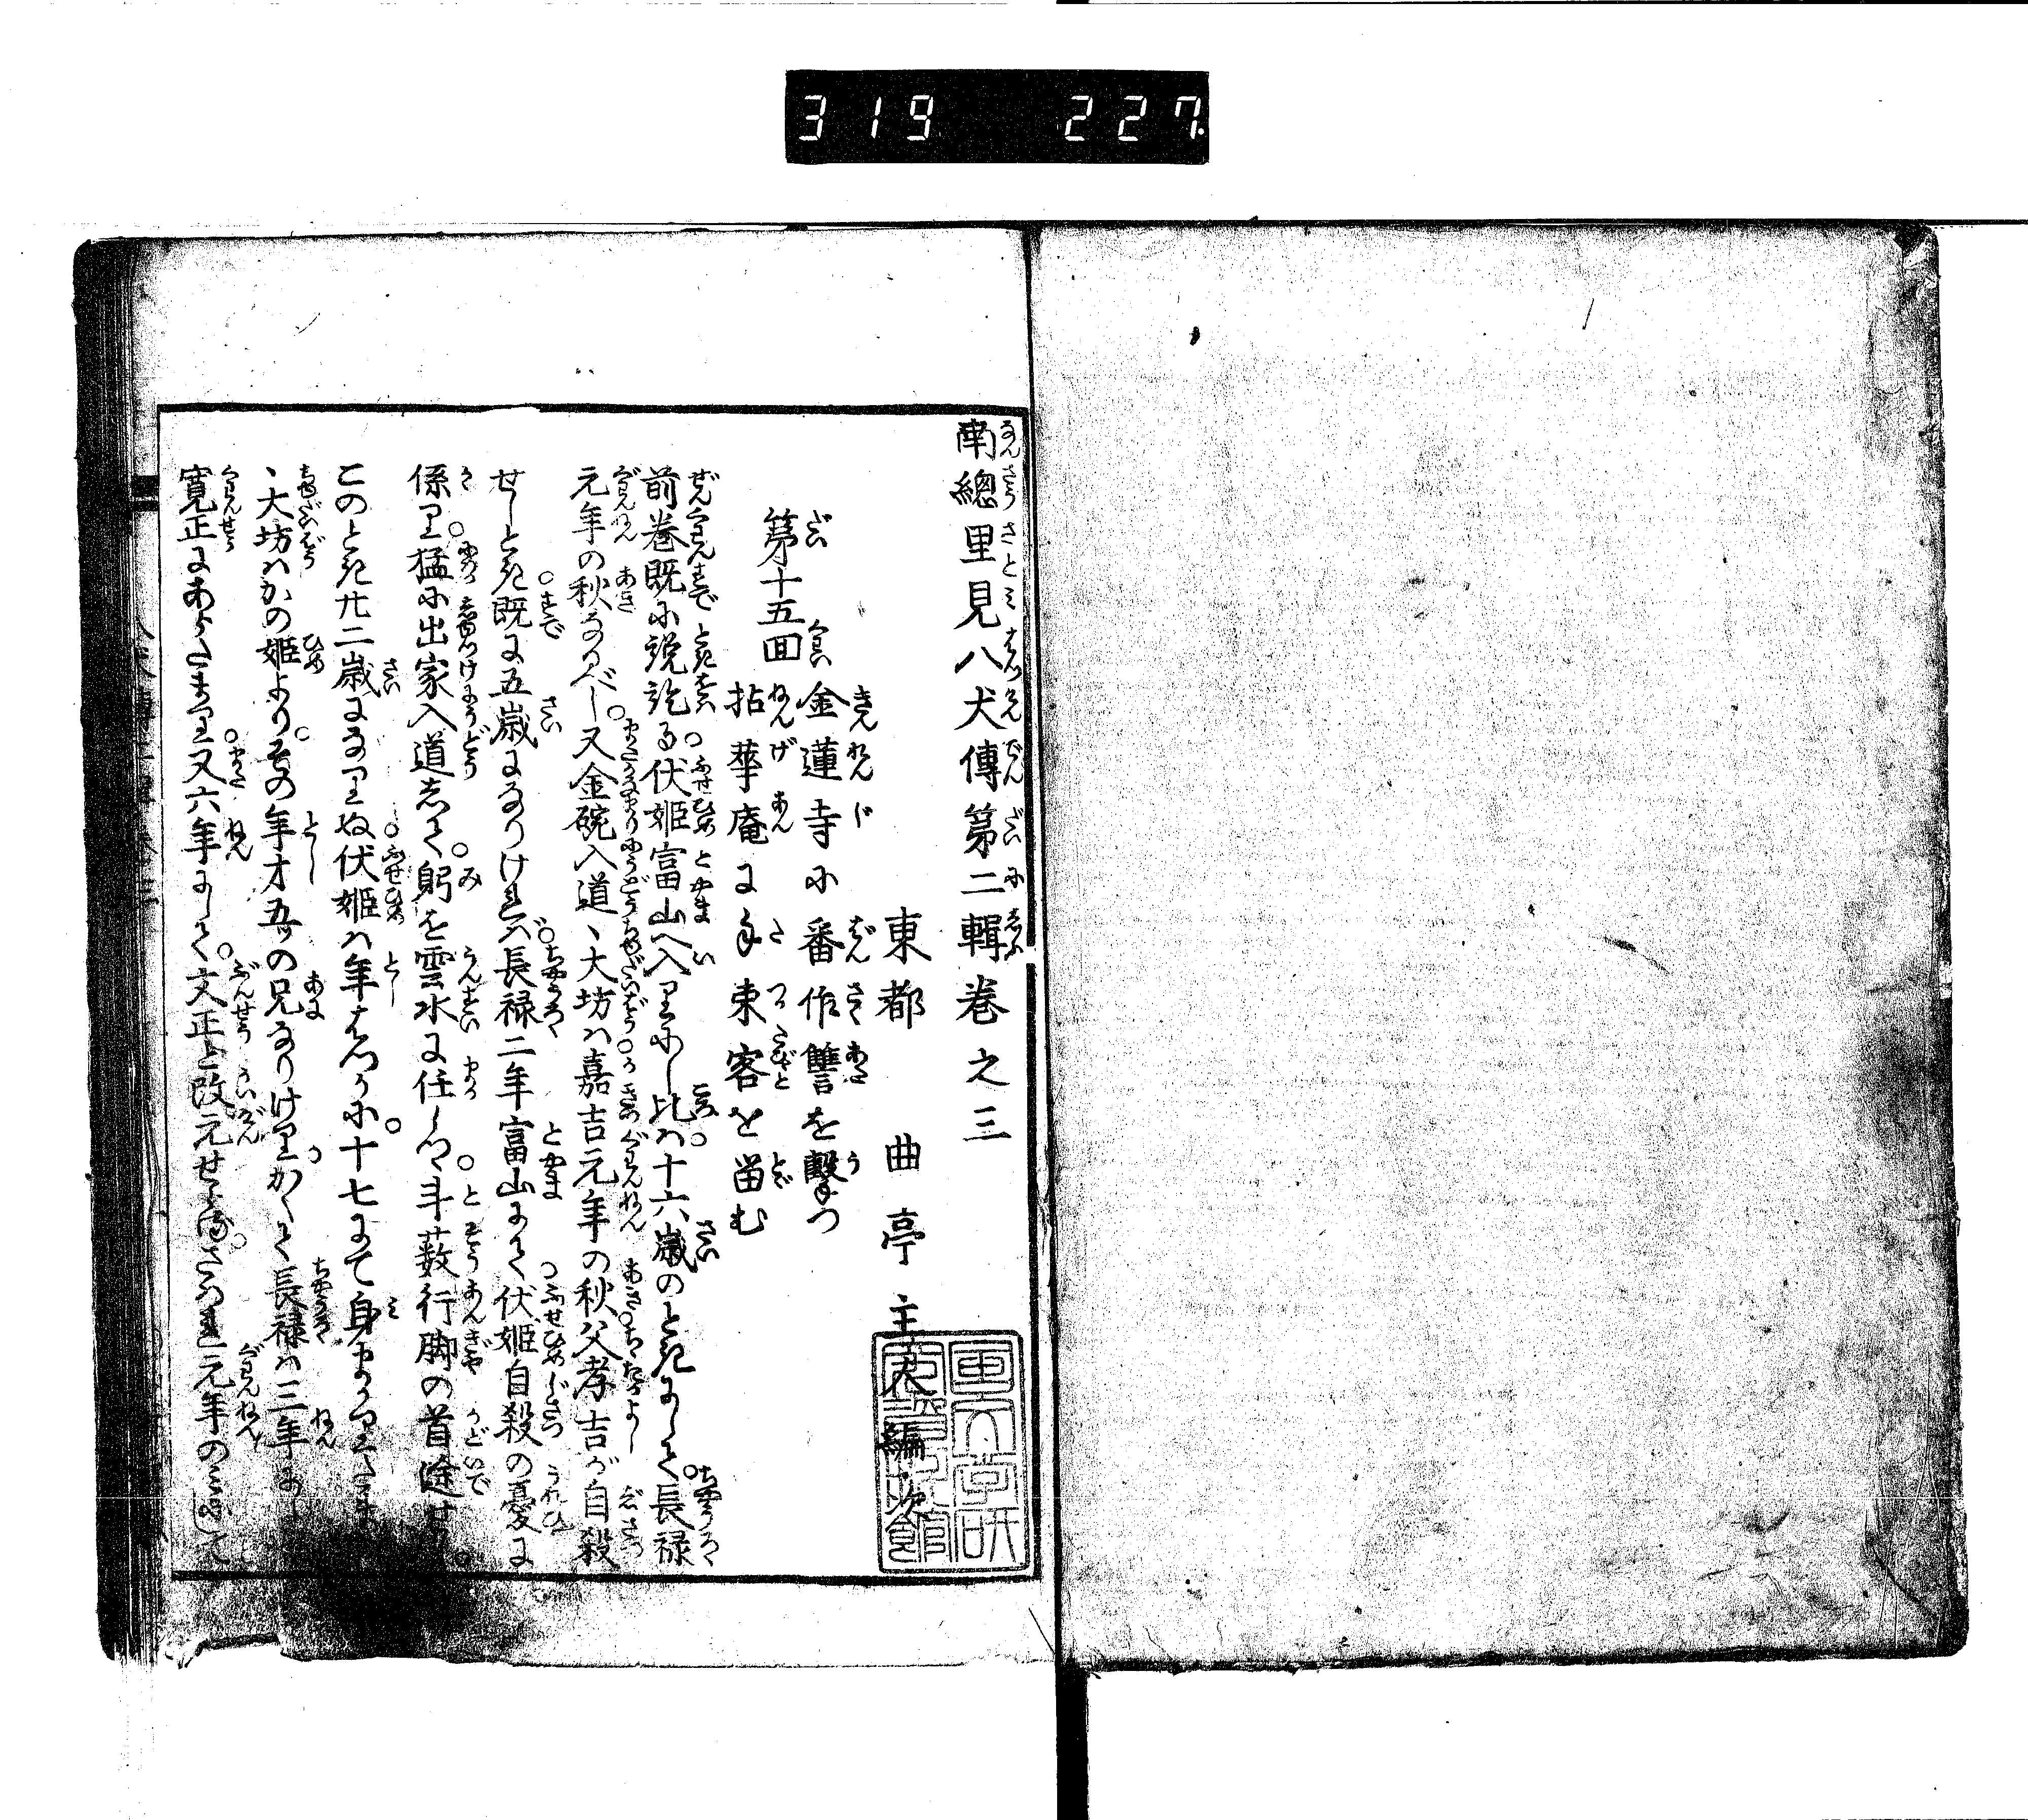 319 227
南總里見八犬傳第二輯巻之三
東都 曲亭主人編次
第十五回
金蓮寺に番作讐を撃つ
拈華庵に手束客を畄む
前巻既に説訖る伏姫富山へ入りにし比は十六歳のときにして長禄
元年の秋なるべし又金碗入道丶大坊は嘉吉元年の秋父孝吉が自殺
せしとき既に五歳になりければ長禄二年富山にて伏姫自殺の憂に
係り猛に出家入道して躬を雲水に任しつ斗薮行脚の首途せし
このとき廿二歳になりぬ伏姫は年はつかに十七にて身まかりたまひ
丶大坊はかの姫よりその年才五の兄なりけりかくて長禄は三年にし
寛正にあらたまり又六年にして文正と改元せらるされ元年のみにして